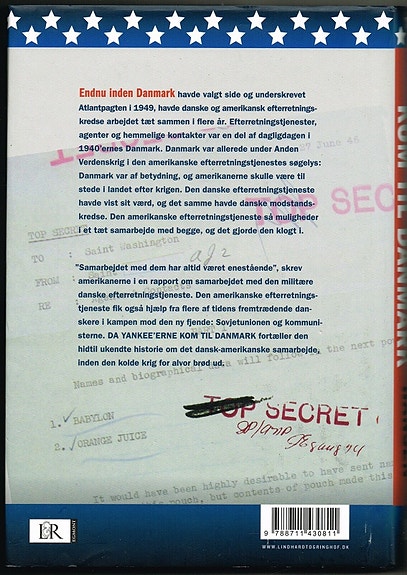 Endnu inden Danmark havde valgt side og underskrevet
Atlantpagten i 1949, havde danske og amerikansk efterretnings-
kredse arbejdet tæt sammen i flere år. Efterretningstjenester,
agenter og hemmelige kontakter var en del af dagligdagen i
1940'ernes Danmark. Danmark var allerede under Anden
Verdenskrig i den amerikanske efterretningstjenestes søgelys:
Danmark var af betydning, og amerikanerne skulle være til
stede i landet efter krigen. Den danske efterretningstjeneste
havde vist sit værd, og det samme havde danske modstands-
kredse. Den amerikanske efterretningstjeneste så muligheder
i et tæt samarbejde med begge, og det gjorde den klogt i.
June 46
TOP SEC
TOP SECRET
TO : Saint Washington
FROM : Saint
RE :
"Samarbejdet med dem har altid været enestående", skrev
amerikanerne i en rapport om samarbejdet med den militære
danske efterretningstjeneste. Den amerikanske efterretnings-
tjeneste fik også hjælp fra flere af tidens fremtrædende dan-
skere i kampen mod den ny fjende: Sovjetunionen og kommuni-
sterne. DA YANKEE'ERNE KOM TIL DANMARK fortæller den
hidtil ukendte historie om det dansk-amerikanske samarbejde,
inden den kolde krig for alvor brød ud.
Names and biographical data will follow in the next po
1. BABYLON
2. ORANGE JUICE
TOP SECRET
It would have been highly desirable to have sent na
pouch, but contents of pouch made this
L&R
EGMONT
9 788711 430811
WWW.LINDHARDTOGRINGHOF.DK
KOM TIL